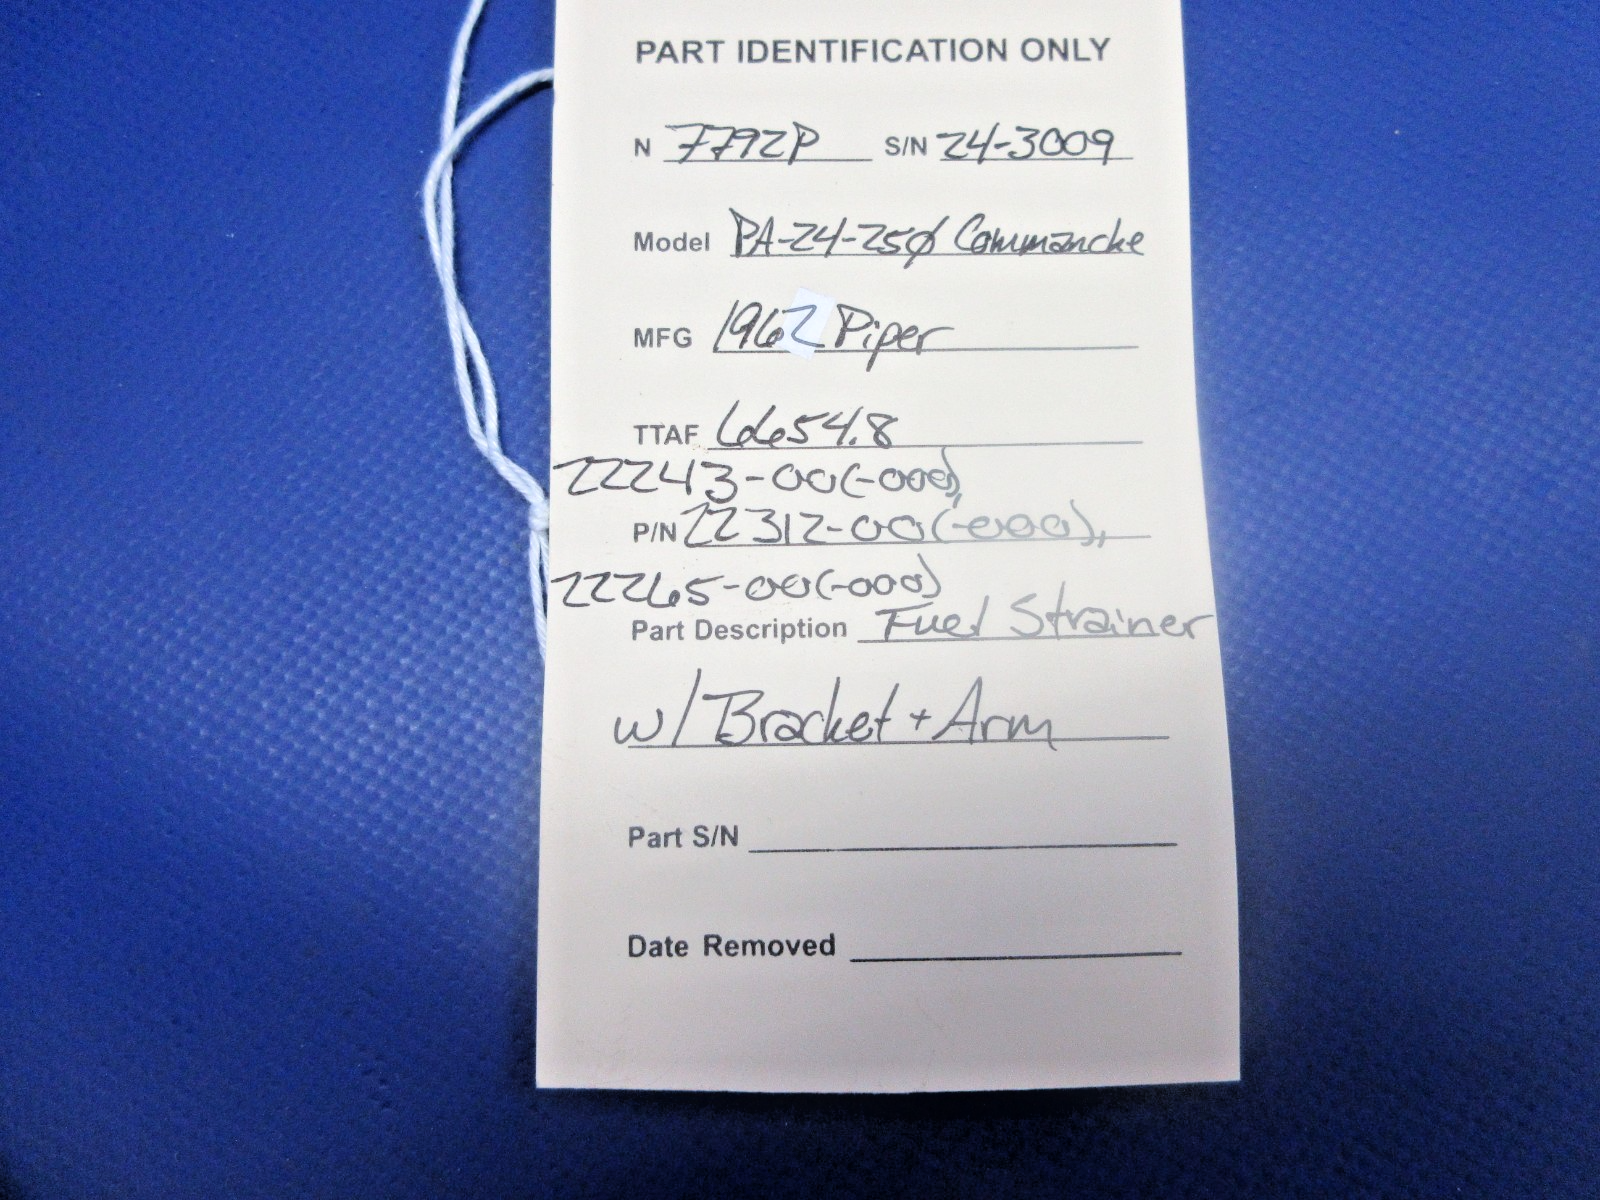 PART IDENTIFICATION ONLY
N 7792P S/N 24-3009
Model PA-24-25Ø Commanche
MFG 1962 Piper
TTAF 6654.8
22243-00(-000),
P/N 22312-00(-000),
22265-00(-000)
Part Description Fuel Strainer
w/ Bracket + Arm
Part S/N
Date Removed